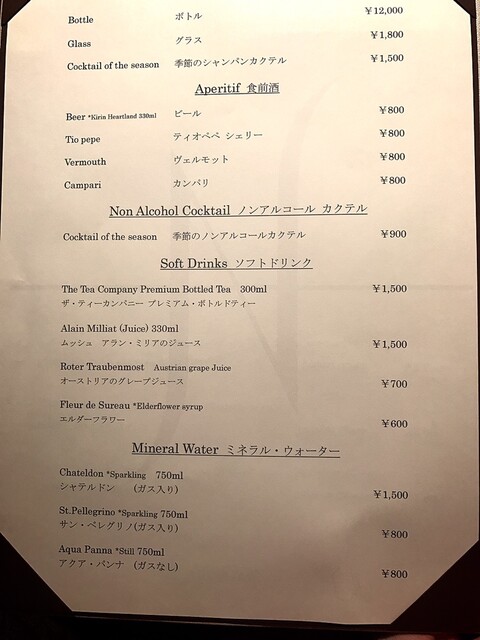 Bottle ボトル ¥12,000
Glass グラス ¥1,800
Cocktail of the season 季節のシャンパンカクテル ¥1,500
Aperitif 食前酒
Beer *Kirin Heartland 330ml ビール ¥800
Tio pepe ティオペペ シェリー ¥800
Vermouth ヴェルモット ¥800
Campari カンパリ ¥800
Non Alcohol Cocktail ノンアルコール カクテル
Cocktail of the season 季節のノンアルコールカクテル ¥900
Soft Drinks ソフトドリンク
The Tea Company Premium Bottled Tea 300ml ¥1,500
ザ・ティーカンパニー プレミアム・ボトルドティー
Alain Milliat (Juice) 330ml
ムッシュ アラン・ミリアのジュース ¥1,500
Roter Traubenmost Austrian grape Juice
オーストリアのグレープジュース ¥700
Fleur de Sureau *Elderflower syrup
エルダーフラワー ¥600
Mineral Water ミネラル・ウォーター
Chateldon *Sparkling 750ml
シャテルドン (ガス入り) ¥1,500
St.Pellegrino *Sparkling 750ml
サン・ペレグリノ(ガス入り) ¥800
Aqua Panna *Still 750ml
アクア・パンナ (ガスなし) ¥800